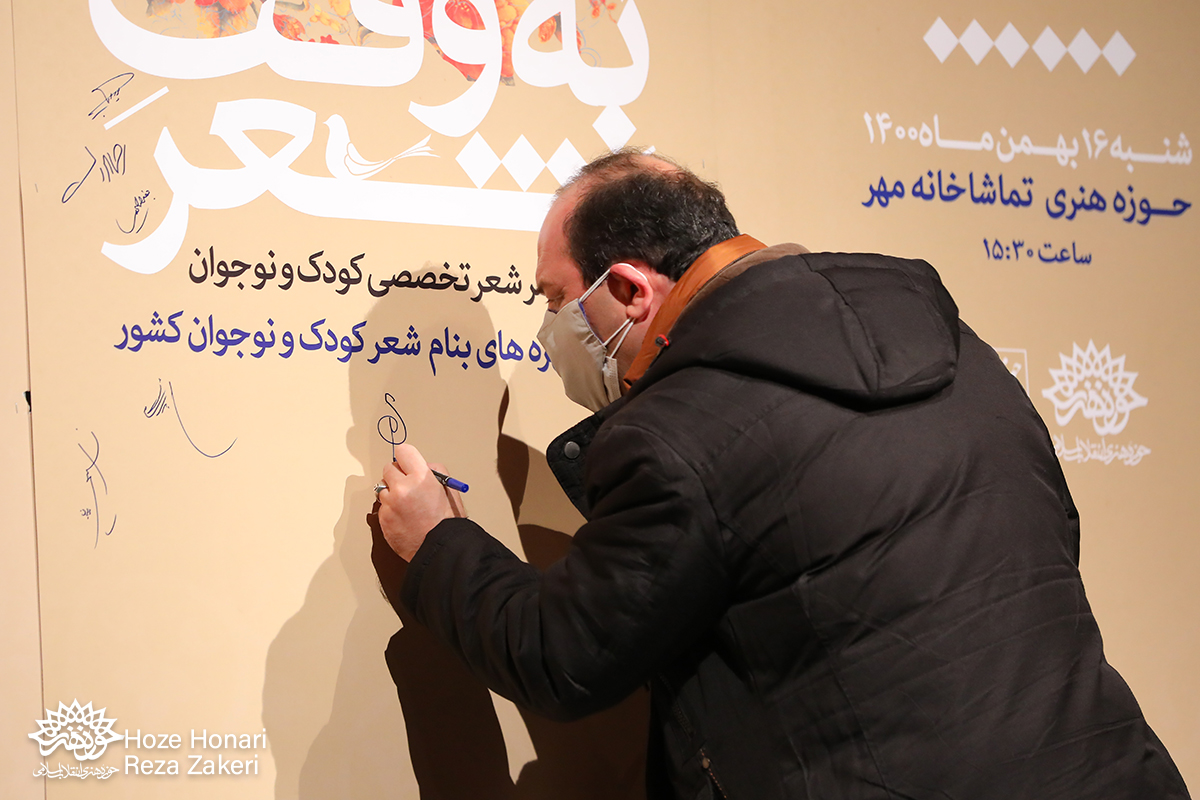 به وقت
شعر
شعر تخصصی کودک و نوجوان
های بنام شعر کودک و نوجوان کشور
شنبه ۱۶ بهمن ماه ۱۴۰۰
حوزه هنری تماشاخانه مهر
ساعت ۱۵:۳۰
حوزه هنری انقلاب اسلامی
حوزه هنری انقلاب اسلامی
Hoze Honari
Reza Zakeri